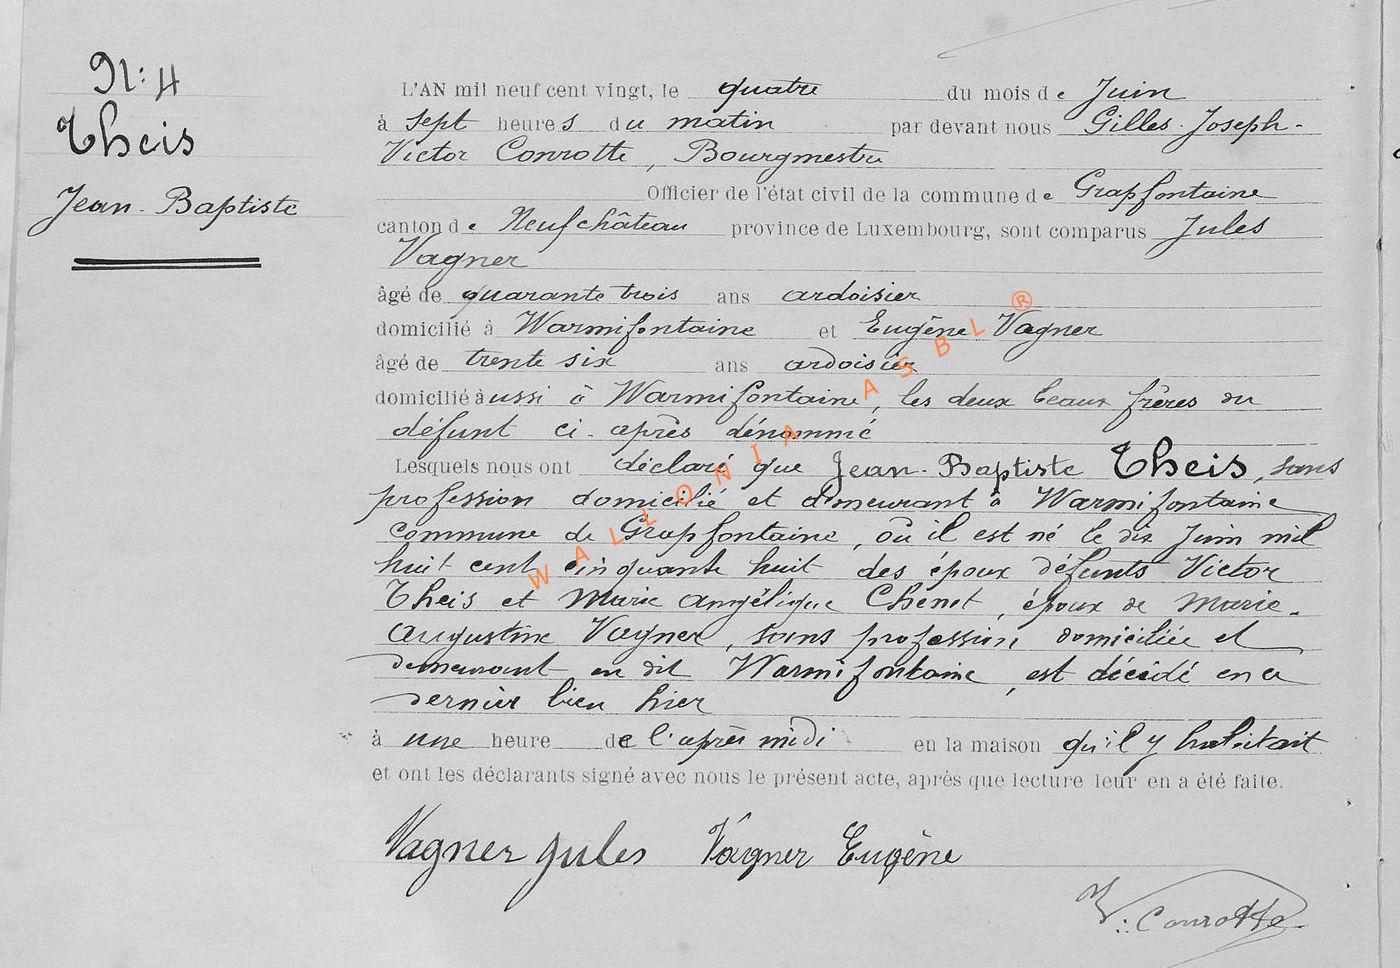 N: 4
Theis
Jean-Baptiste
L'AN mil neuf cent vingt, le quatre du mois de Juin
à sept heures du matin par devant nous Gilles-Joseph-
Victor Conrotte, Bourgmestre
Officier de l'état civil de la commune de Grapfontaine
canton de Neufchâteau province de Luxembourg, sont comparus Jules
Vagner
âgé de quarante trois ans ardoisier
domicilié à Warmifontaine et Eugène Vagner
âgé de trente six ans ardoisier
domicilié aussi à Warmifontaine, les deux beaux frères du
défunt ci-après dénommé
Lesquels nous ont déclaré que Jean-Baptiste Theis, sans
profession domicilié et demeurant à Warmifontaine
commune de Grapfontaine, où il est né le dix Juin mil
huit cent cinquante huit des époux défunts Victor
Theis et Marie Angélique Chenot, époux de Marie-
Augustine Vagner, sans profession domiciliée et
demeurant en dit Warmifontaine, est décédé en ce
dernier lieu hier
à une heure de l'après midi en la maison qu'il y habitait
et ont les déclarants signé avec nous le présent acte, après que lecture leur en a été faite.
Vagner Jules Vagner Eugène
V: Conrotte
WALLONIA ASBL ®